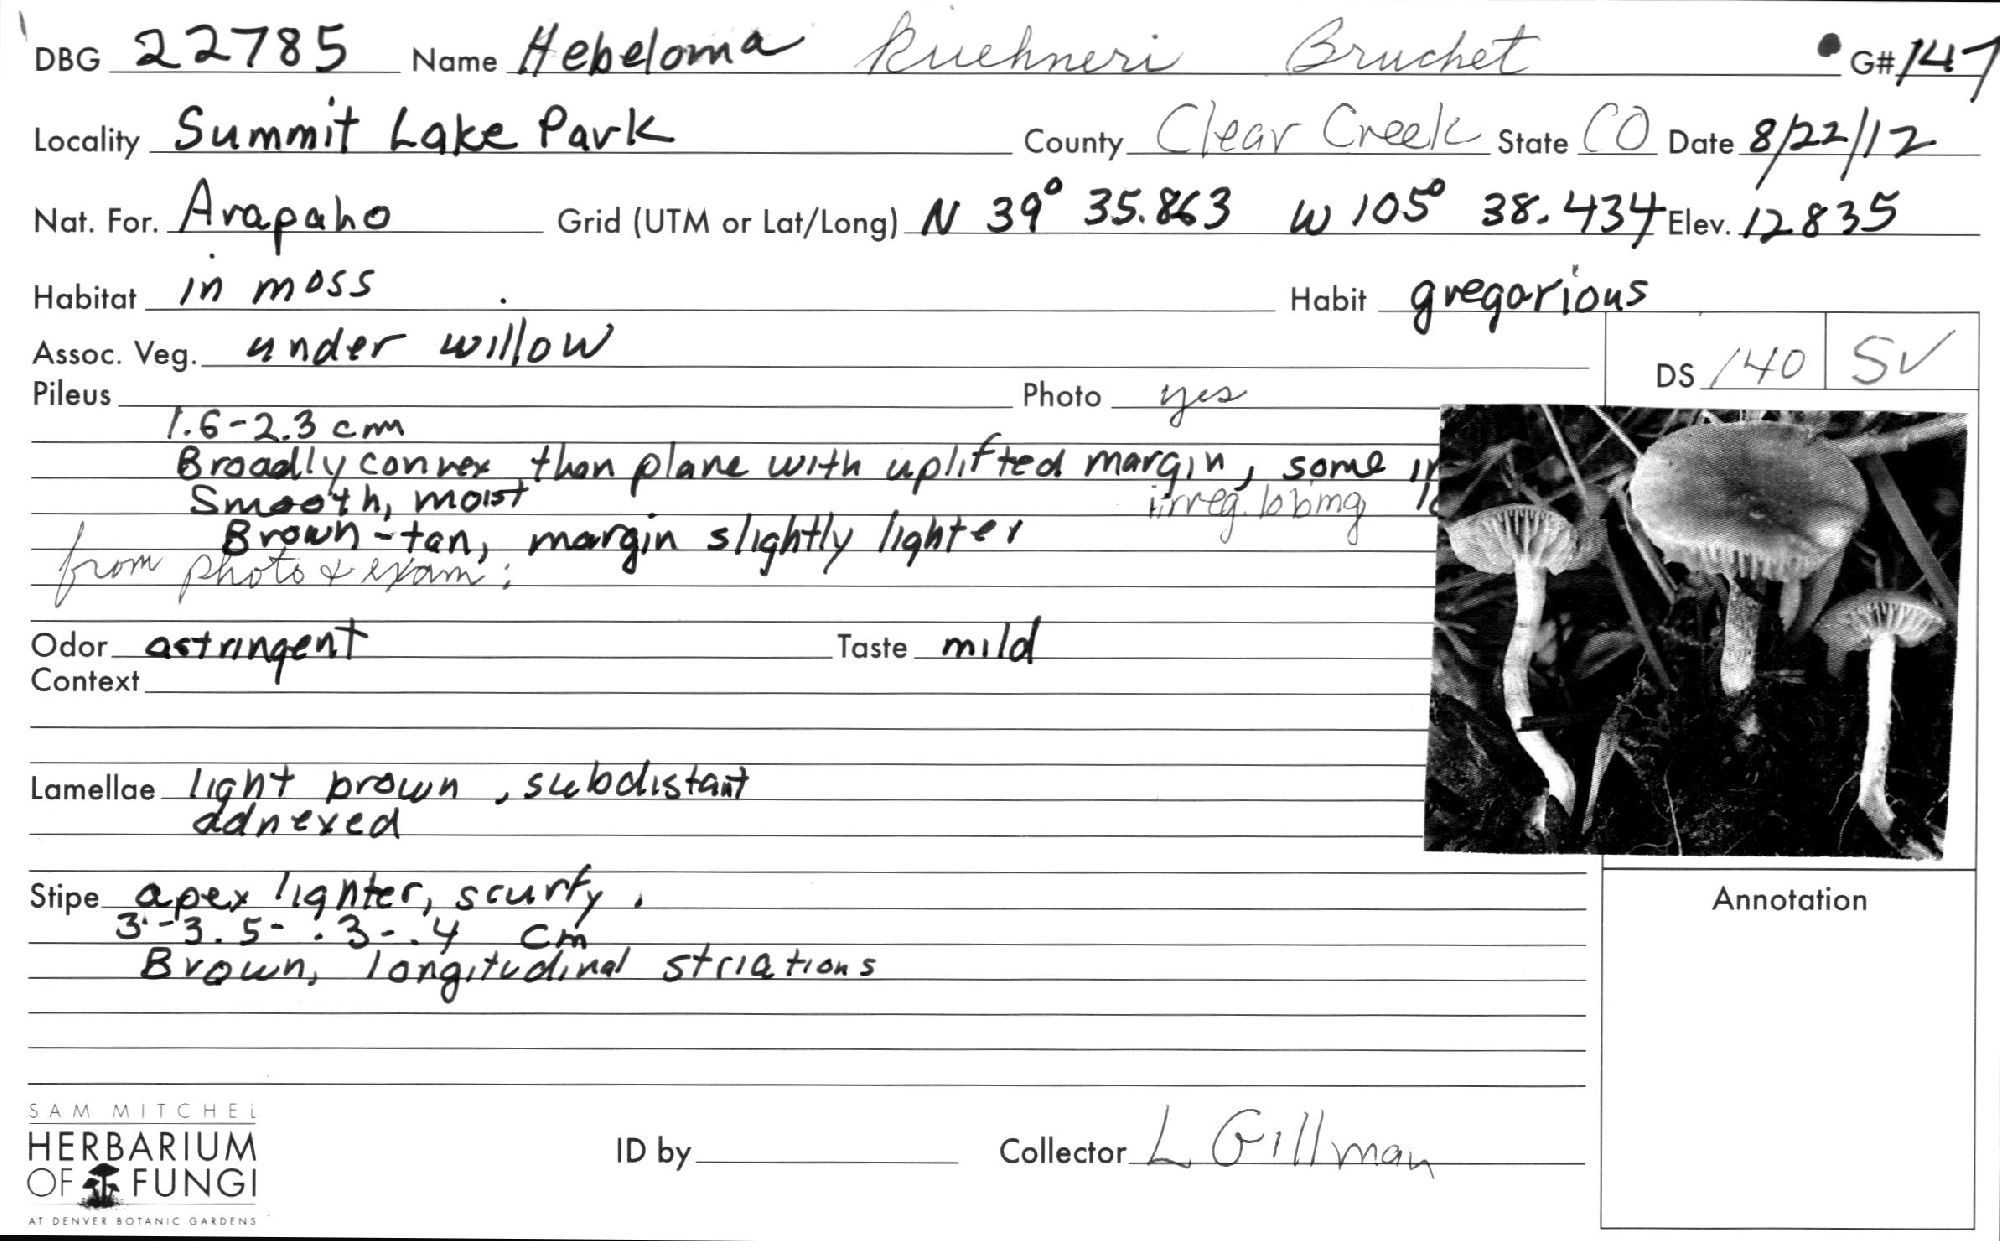 DBG 22785 Name Hebeloma Kuehneri Bruchet G# 147
Locality Summit Lake Park County Clear Creek State CO Date 8/22/12
Nat. For. Arapaho Grid (UTM or Lat/Long) N 39° 35.863 W 105° 38.434 Elev. 12835
Habitat in moss Habit gregarious
Assoc. Veg. under willow DS 140 SV
Pileus Photo yes
1.6-2.3 cm
Broadly convex then plane with uplifted margin, some
Smooth, moist irreg. lobing
Brown-tan, margin slightly lighter
from photo & exam:
Odor astringent Taste mild
Context
Lamellae light brown, subdistant
adnexed
Stipe apex lighter, scurfy.
3-3.5- .3-.4 cm
Brown, longitudinal striations
Annotation
SAM MITCHEL
HERBARIUM
OF FUNGI
AT DENVER BOTANIC GARDENS
ID by Collector L Gillman